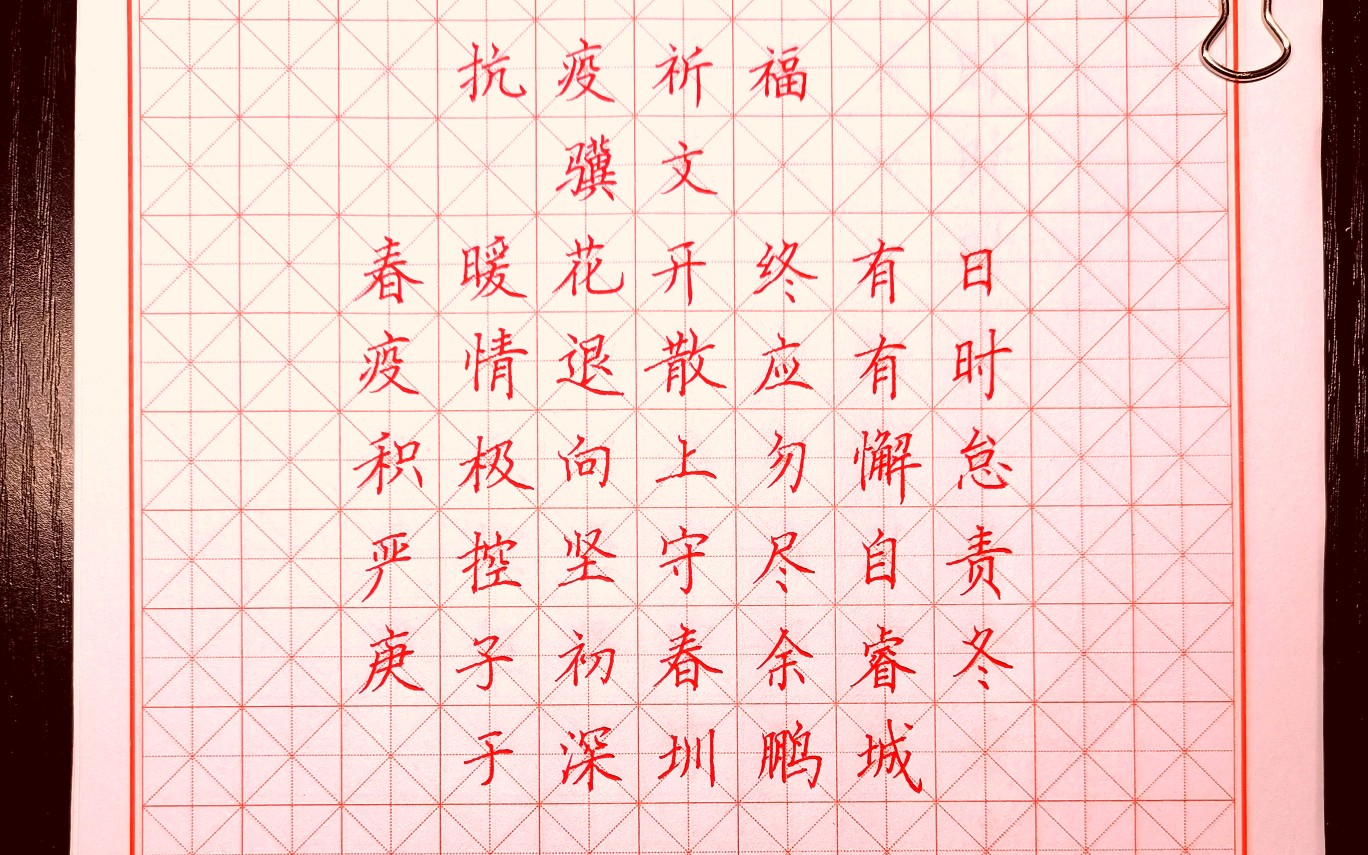 抗疫祈福
骥文
春暖花开终有日
疫情退散应有时
积极向上勿懈怠
严控坚守尽自责
庚子初春余睿冬
于深圳鹏城